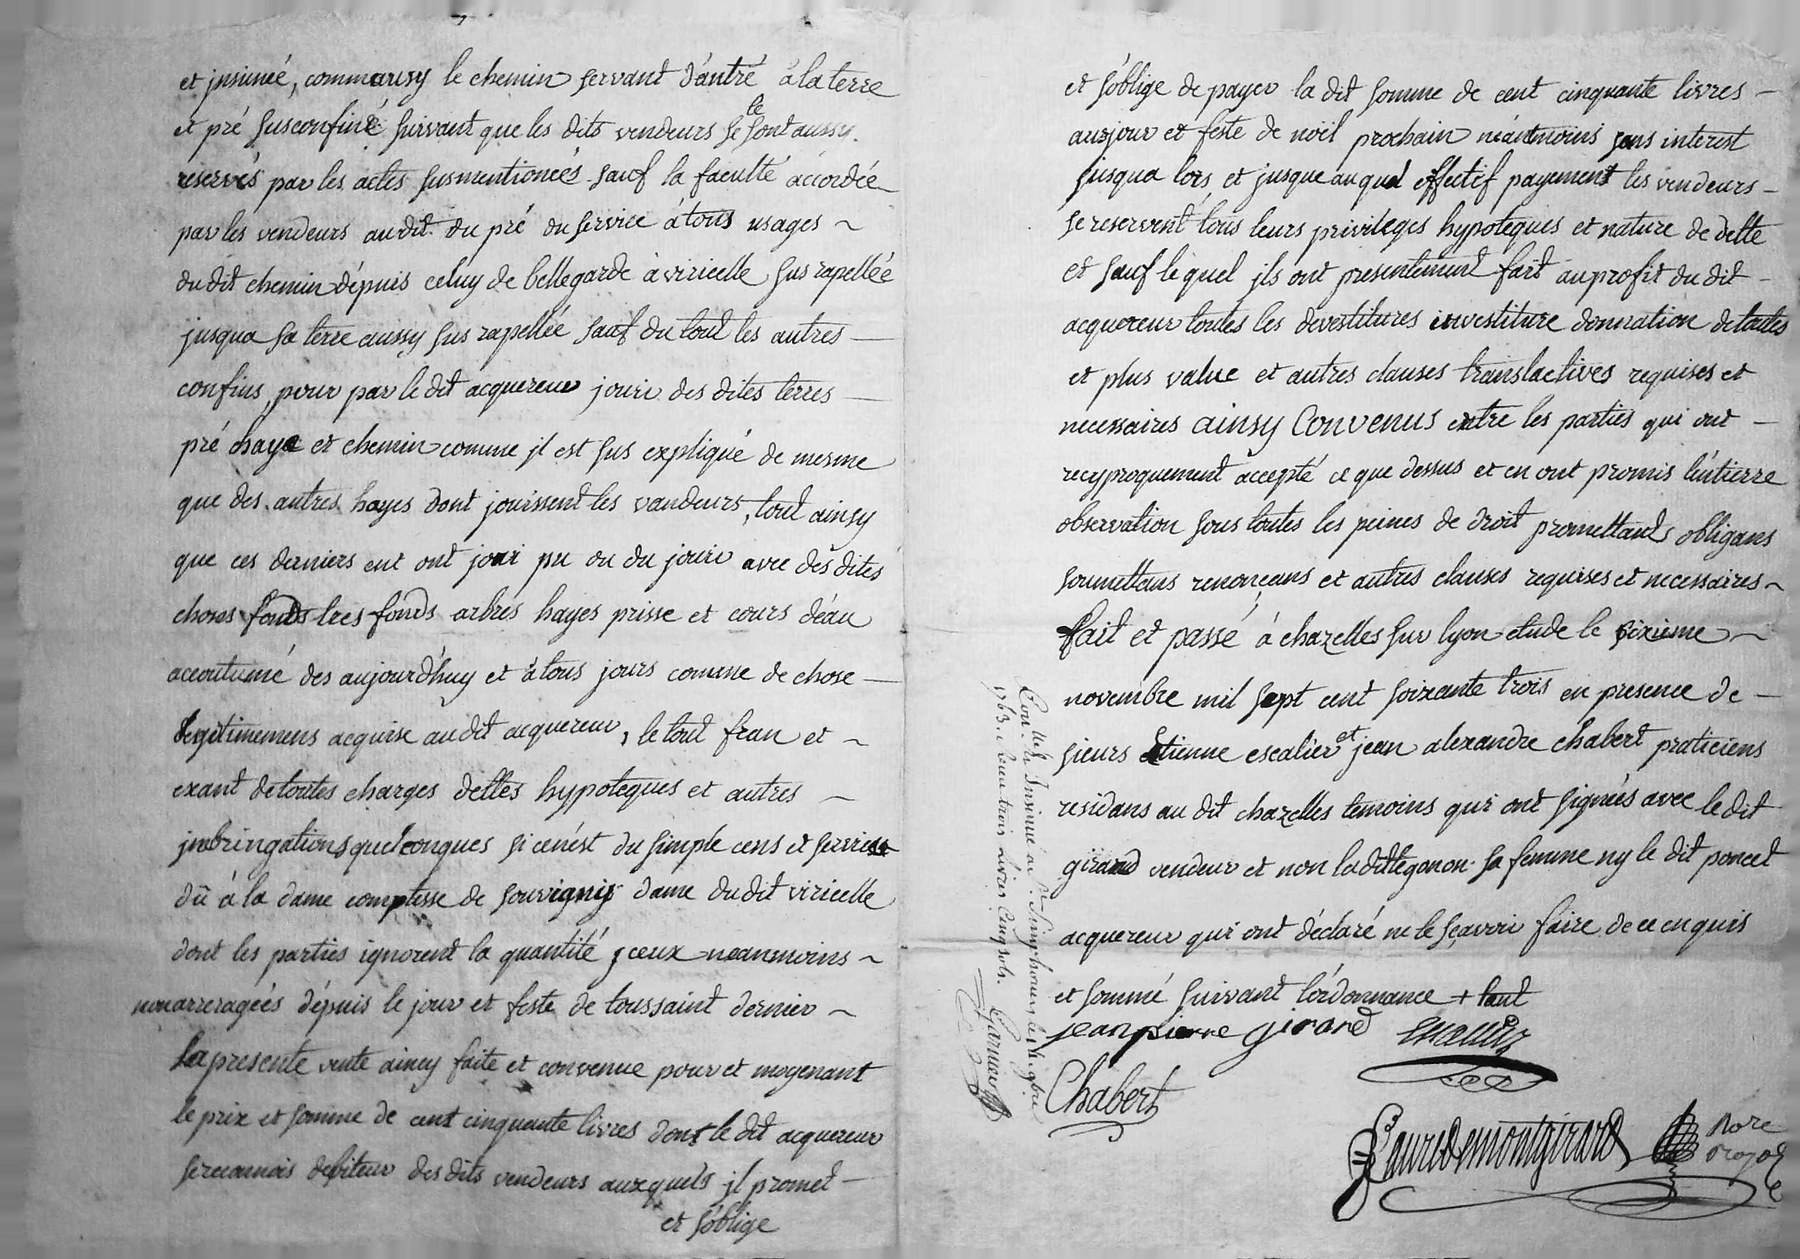 et jnsinué, comm aussy le chemin servant d'antré à la terre
et pré susconfiné suivant que les dits vendeurs se le sont aussy
reservés par les actes susmentionnés sauf la faculté accordée
par les vendeurs audit du pré du service à tous usages ~
du dit chemin dépuis celuy de bellegarde à viricelle sus rapellée
jusqua sa terre aussy sus rapellée sauf du tout les autres
confins, pour par le dit acquereur jouir des dites terres
pré haye et chemin comme jl est sus expliqué de mesme
que des autres hayes dont jouissent les vandeurs, tout ainsy
que ces derniers ent ont joui pu ou du jouir avec des dités
choses fonds tres fonds arbres hayes prisse et cours d'éau
accoutumé des aujourd'huy et à tous jours comme de chose
legitimemens acquise au dit acquereur, le tout fran et ~
exant de toutes charges dettes hypoteques et autres
jmbringations quelconques si ce nést du simple cens et service
dû à la dame comptesse de souvigny dame du dit viricelle
dont les parties ignorent la quantité jceux neanmoins ~
non arreragés dépuis le jour et feste de toussaint dernier ~
la presente vente aincy faite et convenue pour et moyenant
le prix et somme de cent cinquante livres dont le dit acquereur
se reconnois debiteur des dits vendeurs auxquels jl promet
et s'oblige
et s'oblige de payer la dit somme de cent cinquante livres
aux jour et feste de noël prochain néantmoins sans interest
jusqua lors, et jusque au qual effectif payement les vendeurs
se reservent tous leurs privileges hypoteques et nature de dette
et sauf le quel jls ont presentement fait au profit du dit
acquereur toutes les devestitures investiture donnation de toutes
et plus value et autres clauses translactives requises et
necessaires ainsy Convenus entre les parties qui ont
recyproquement accepté ce que dessus et en ont promis léntierre
observation sous toutes les peines de droit promettants obligans
soumettans renonçeans et autres clauses requises et necessaires ~
fait et passé à chazelles sur lyon etude le sixieme ~
novembre mil sept cent soixante trois en presence de
sieurs Etienne escalier et jean alexandre chabert praticiens
residans au dit chazelles temoins qui ont signés avec le dit
girard vendeur et non la ditte gonon sa femme ny le dit poncet
acquereur qui ont déclaré ne le sçavoir faire de ce enquis
et sommé suivant l'órdonnance + tant
jean pierre girard
Chabert
Faure de montgirard
Nore
royal
Con. lé Insinué a St. Simphorien le
1763. Reçu trois livres Cinq sols.